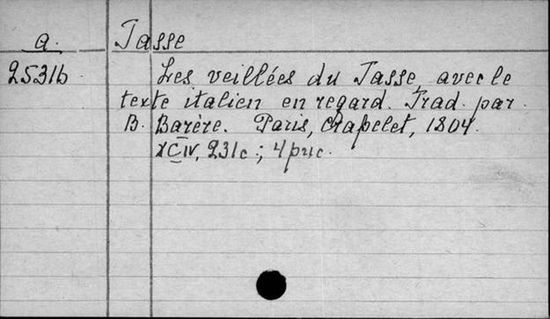 a. Tasse
2531b Les veillées du Tasse, avec le
texte italien en regard. Trad. par
B. Barère. Paris, Crapelet, 1804.
XCIV, 231c.; 4 рис.